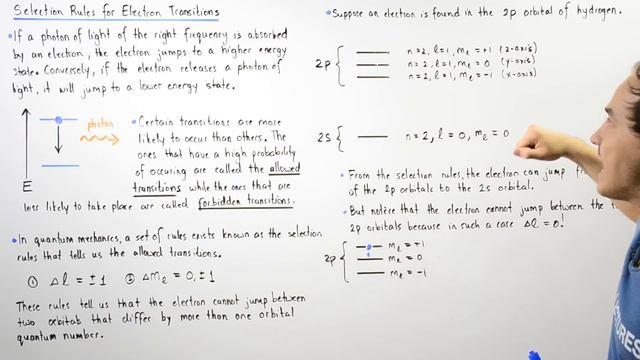 Selection Rules for Electron Transitions
• If a photon of light of the right frequency is absorbed
by an electron, the electron jumps to a higher energy
state. Conversely, if the electron releases a photon of
light, it will jump to a lower energy state.
photon
E
• Certain transitions are more
likely to occur than others. The
ones that have a high probability
of occuring are called the allowed
transitions while the ones that are
less likely to take place are called forbidden transitions.
• In quantum mechanics, a set of rules exists known as the selection
rules that tells us the allowed transitions.
① Δl = ±1 ② Δmₗ = 0, ±1
These rules tell us that the electron cannot jump between
two orbitals that differ by more than one orbital
quantum number.
• Suppose an electron is found in the 2p orbital of hydrogen.
2p { n=2, l=1, mₗ = +1 (z-axis)
n=2, l=1, mₗ = 0 (y-axis)
n=2, l=1, mₗ = -1 (x-axis)
2s { n=2, l=0, mₗ = 0
• From the selection rules, the electron can jump
of the 2p orbitals to the 2s orbital.
• But notice that the electron cannot jump between the
2p orbitals because in such a case Δl = 0!
2p { mₗ = +1
mₗ = 0
mₗ = -1